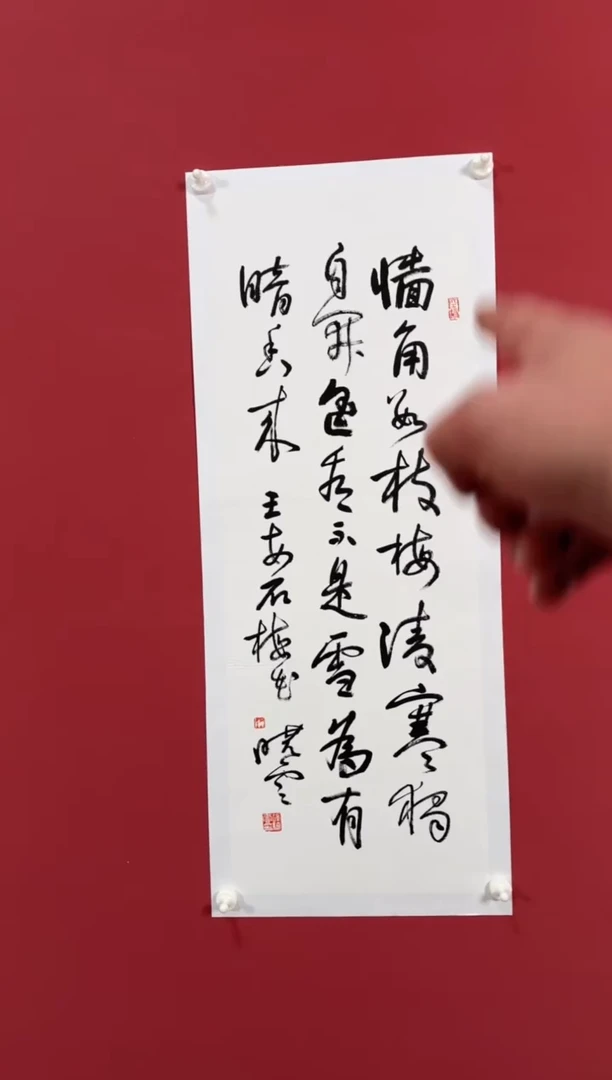 墙角数枝梅凌寒独
自開遥知不是雪為有
暗香来 王安石梅花 晓雲